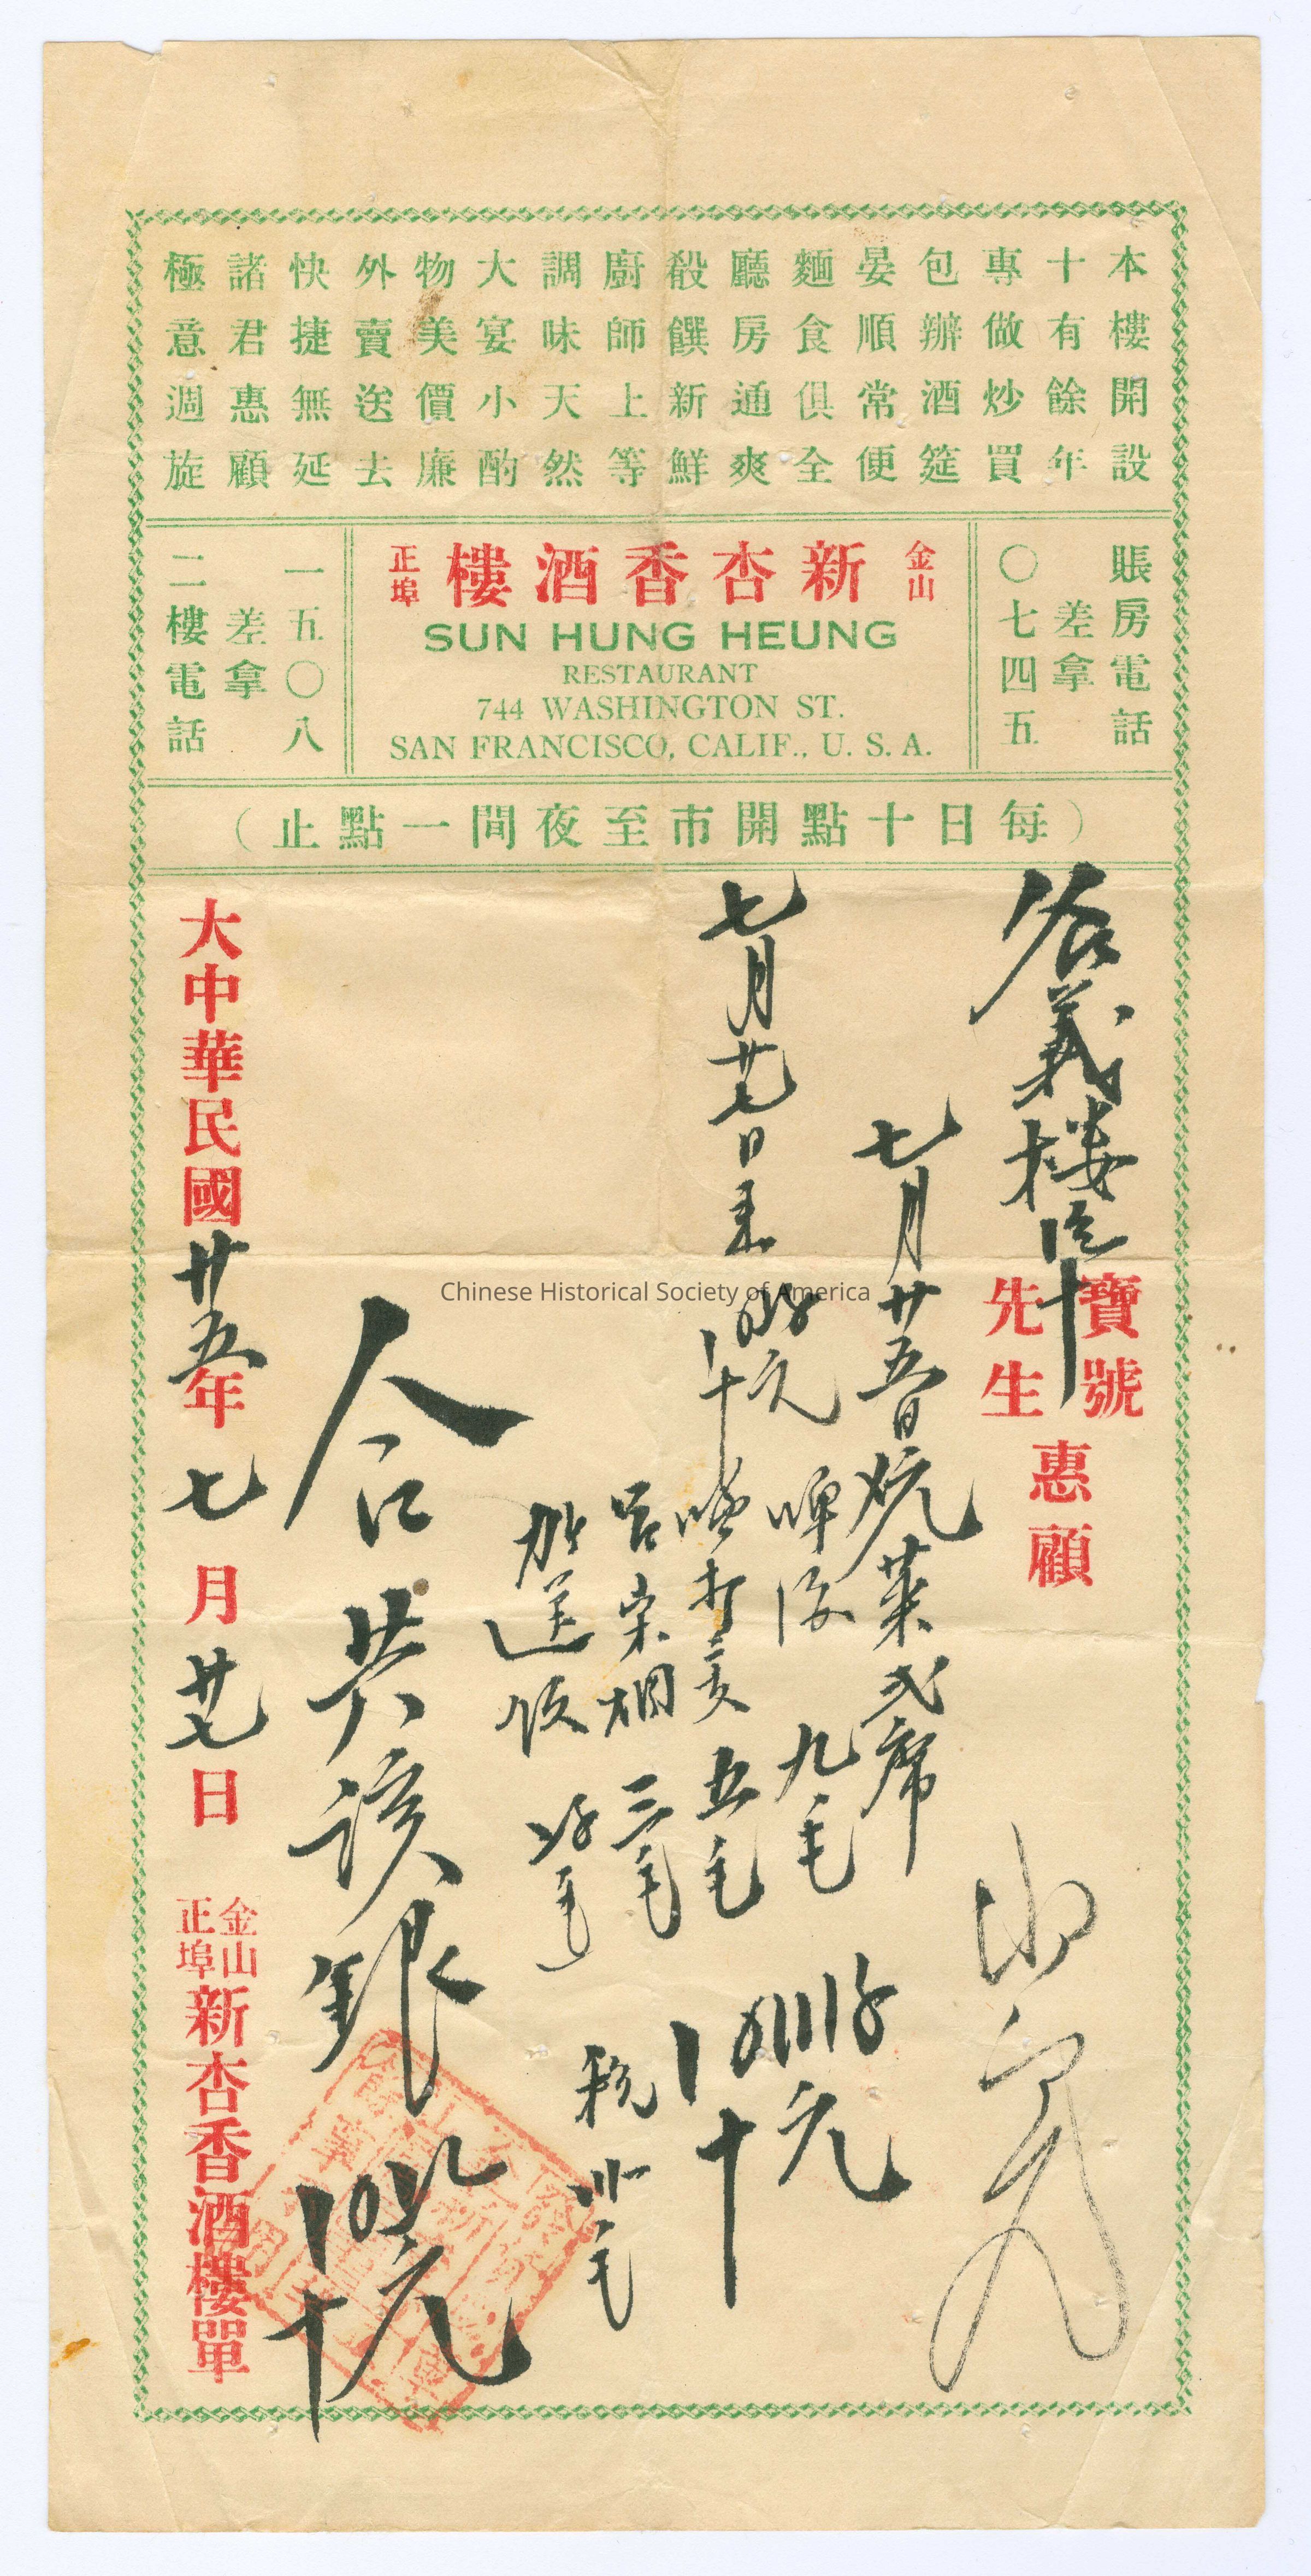 本樓開設
十有餘年
專做炒買
包辦酒筵
晏順常便
麵食俱全
廳房通爽
殽饌新鮮
廚師上等
調味天然
大宴小酌
物美價廉
外賣送去
快捷無延
諸君惠顧
極意週旋
賬房電話
差拿
〇七四五
金山
新杏香酒樓
正埠
SUN HUNG HEUNG
RESTAURANT
744 WASHINGTON ST.
SAN FRANCISCO, CALIF., U. S. A.
一五〇八
差拿
二樓電話
(每日十點開市至夜間一點止)
義樓
寶號
先生
惠顧
七月廿五日
菜弍席
七月廿七日來
啤酒 九毛
五毛
呂宋烟 三毛
加送
税
合共該銀
大中華民國廿五年七月廿七日
金山
正埠
新杏香酒樓單
Chinese Historical Society of America